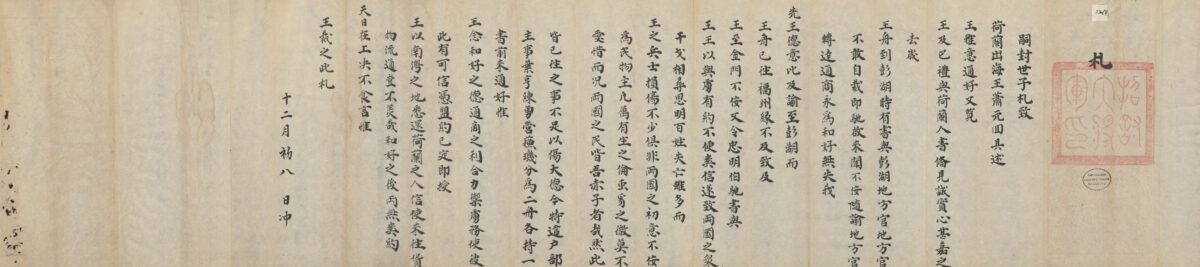 札
嗣封世子札致
荷蘭出海王蕭元回具述
王雅意通好又覧
王及巴禮與荷蘭人書備見誠實心甚嘉之
去歲
王舟到彭湖時有書與彭湖地方官地方官
不敢自裁即馳啟來閩不佞隨諭地方官
轉達通商永為和好無失我
先王德意比及諭至彭湖而
王舟已往福州緣不及致及
王至金門不佞又令忠明伯馳書與
王王以與虜有約不便爽信遂致兩國之衆
干戈相尋思明百姓失亡雖多而
王之兵士損傷不少俱非兩國之初意不佞
為民物主凡為有生之倫虫豸之微莫不
愛惜而况兩國之民皆吾赤子者哉然此
皆已往之事不足以傷大德今特遣戶部
主事葉亨練勇營璣分為二舟各持一
書前來通好惟
王念和好之德通商之利合力禦虜務使彼
此有可信憑盟約已定即授
王以南灣之地悉還荷蘭之人信使來往貨
物流通豈不美哉和好之後兩無爽約
天日在上决不食言惟
王裁之此札
十二月初八日冲
招討大將軍印